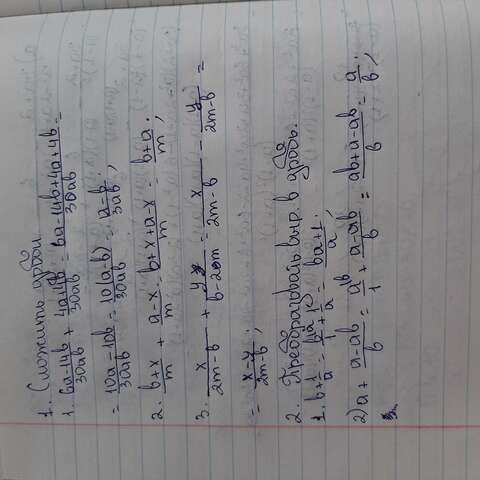 1. Сложить дроби.
1. 6a-14b/30ab + 4a+4b/30ab = 6a-14b+4a+4b/30ab =
= 10a-10b/30ab = 10(a-b)/30ab = a-b/3ab;
2. b+x/m + a-x/m = b+x+a-x/m = b+a/m;
3. x/2m-b + y/b-2m = x/2m-b - y/2m-b =
= x-y/2m-b;
2. Преобразовать выр. в дробь.
1. b+1/a = b/1+1/a = ba+1/a;
2) a + a-ab/b = a/1 + a-ab/b = ab+a-ab/b = a/b;